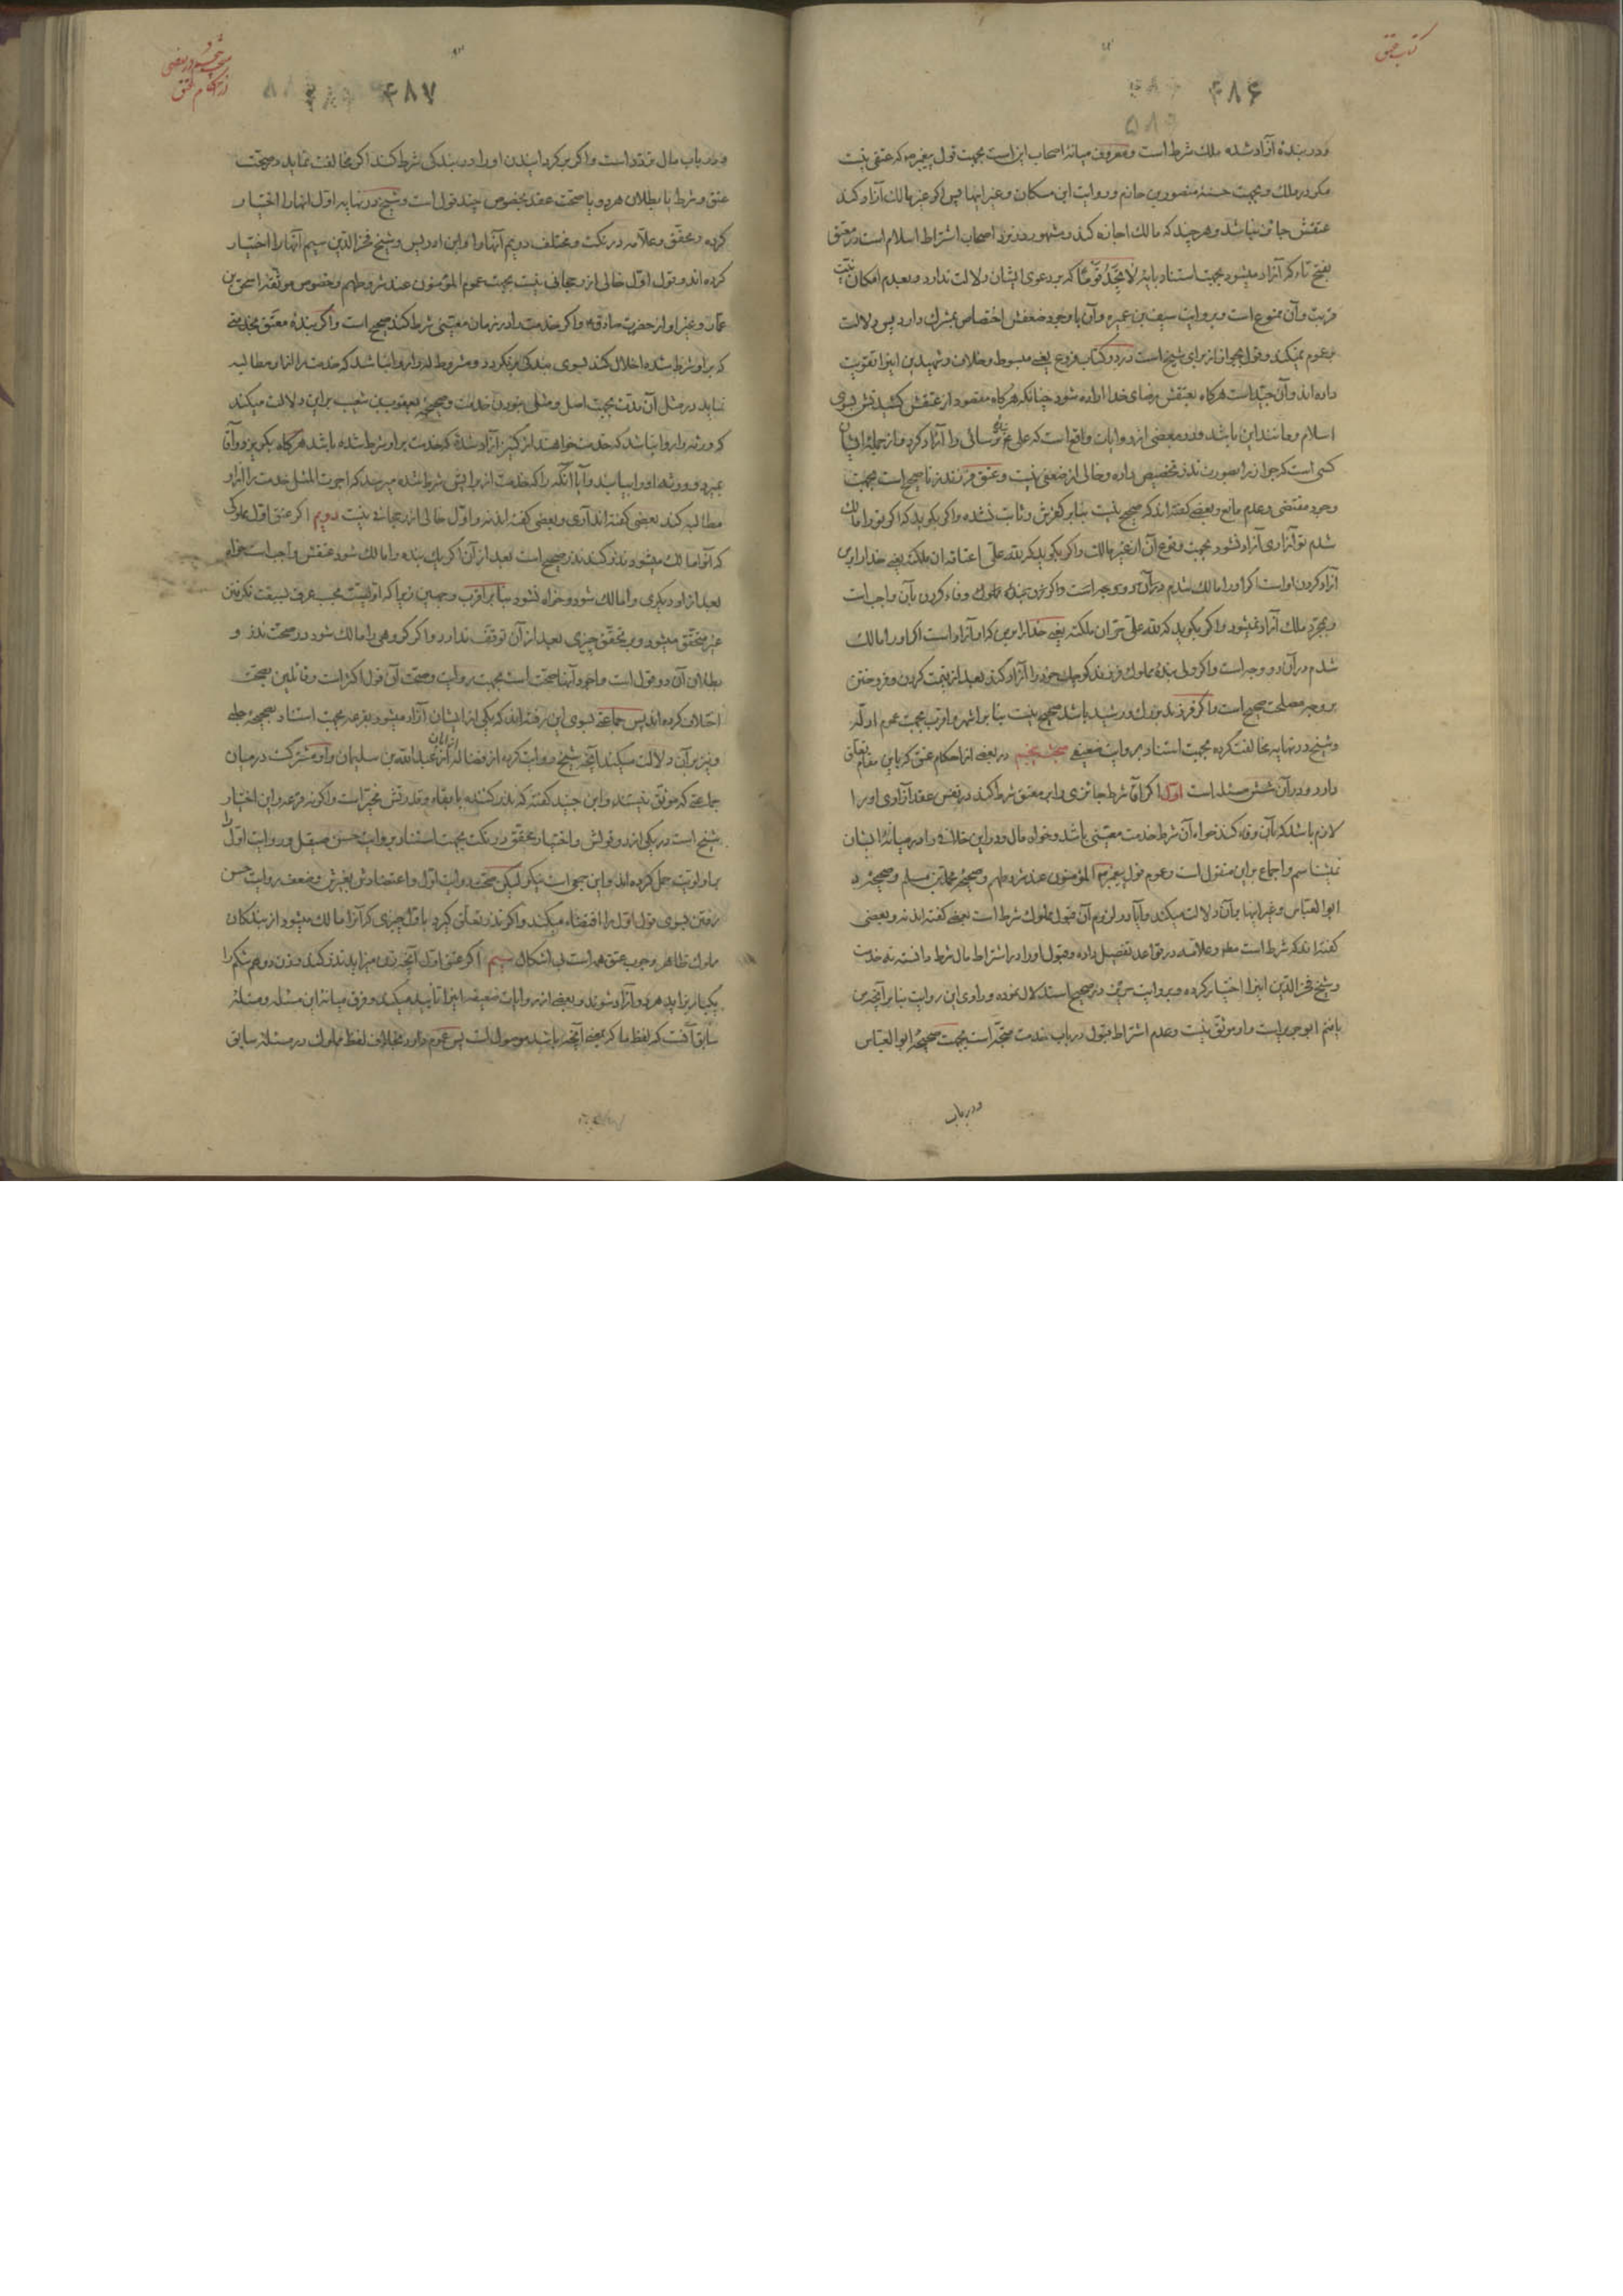 کتاب عتق
۴۸۶
۵۸۹
و در بندهٔ آزاد شده ملك شرط است و معروف میانهٔ اصحاب این است بجهت قول پیغمبر ص که عتقی نیست
مکر در ملك و بجهت حسنهٔ منصور بن حازم و روایت ابن مسکان و غیر اینها پس اکر غیر مالك آزاد کند
عتقش جائز نباشد و هر چند که مالك اجازه کند و مشهور در نزد اصحاب اشتراط اسلام است در معتق
بفتح تاء که آزاد میشود بجهت استناد بایهٔ لا تجد قوما که بر دعوی ایشان دلالت ندارد و بعدم امکان نیت
قربت و آن ممنوع است و بروایت سیف بن عمیره و آن با وجود ضعفش اختصاص بمشرك دارد پس دلالت
بر عموم نمیکند و قول بجواز از برای شیخ است در دو کتاب فروع یعنی مبسوط و خلاف و شهیدین اینرا تقویت
داده اند و آن جید است هرکاه بعتقش رضای خدا اراده شود چنانکه هرکاه مقصود از عتقش کشیدنش بسوی
اسلام و مانند این باشد و در بعضی از روایات واقع است که علی ع ترسائی را آزاد کرد و از جملهٔ ایشان
کسی است که جواز را بصورت نذر تخصیص داده و خالی از ضعفی نیست و عتق فرزند زنا صحیح است بجهت
وجود مقتضی و عدم مانع و بعضی کفته اند که صحیح نیست بنابر کفرش و ثابت نشده و اکر بکوید که اکر تو را مالك
شدم تو آزادی آزاد نشود بجهت وقوع آن از غیر مالك و اکر بکوید که لله علی اعتاقه ان ملکته یعنی خدا را بر من
آزاد کردن او است اکر او را مالك شدم در آن دو وجه است و اکر نذر وفاء کردن بآن واجب است
و بمجرد ملك آزاد نمیشود و اکر بکوید که لله علی حر ان ملکته یعنی خدا را بر من که او آزاد است اکر او را مالك
شدم در آن دو وجه است و اکر ولی بندهٔ مملوك فرزند کوچك خود را آزاد کند بعد از قیمت کردن و فروختن
بر وجه مصلحت صحیح است و اکر فرزند بزرك و رشید باشد صحیح نیست بنابر اشهر و اقرب بجهت عموم ادله
و شیخ در نهایه مخالفت کرده بجهت استناد بروایت ضعیفی مبحث پنجم در بعضی از احکام عتق که باین مقام تعلق
دارد و در آن شش مسئله است اول اکر آقا شرط جائزی را بر معتق شرط کند در نفس عقد آزادی او را
لازم باشد که بآن وفاء کند خواه آن شرط خدمت معینی باشد و خواه مال و در این خلافی را در میانهٔ ایشان
نمیشناسم و اجماع بر این منقول است و عموم قول پیغمبر ص المؤمنون عند شروطهم و صحیحهٔ محمد بن مسلم و صحیحهٔ
ابو العباس و غیر اینها بر آن دلالت میکند و آیا در لزوم آن قبول مملوك شرط است بعضی کفته اند نه و بعضی
کفته اند که شرط است و علامه در قواعد تفصیل داده و قبول او را در اشتراط مال شرط دانسته نه خدمت
و شیخ فخر الدین اینرا اختیار کرده و بروایت حریز و در صحیح استدلال نموده و راوی این روایت بنابر آنچه من
یافتم ابو جریر است و او موثق نیست و عدم اشتراط قبول در باب خدمت متجه است بجهت صحیحهٔ ابو العباس
و در باب
۴۸۷
و در باب مال تردد است و اکر برکردانیدن او را در بندکی شرط کند اکر مخالفت نماید در صحت
عتق و شرط یا بطلان هر دو یا صحت عقد بخصوص چند قول است و شیخ در نهایه اول اینها را اختیار
کرده و محقق و علامه در نکت و مختلف دویم آنها را و ابن ادریس و شیخ فخر الدین سیم آنها را اختیار
کرده اند و قول اول خالی از رجحانی نیست بجهت عموم المؤمنون عند شروطهم و خصوص موثقهٔ اسحق بن
عمار و غیر او از حضرت صادق ع و اکر خدمت را در زمان معینی شرط کند صحیح است و اکر بندهٔ معتق بخدمتی
که بر او شرط شده اخلال کند بسوی بندکی برنکردد و مشروط له را روا نباشد که خدمت را از او مطالبه
نماید در مثل آن مدت بجهت اصل و مثلی نبودن خدمت و صحیحهٔ یعقوب بن شعیب بر این دلالت میکند
که ورثه را روا نباشد که خدمت خواهند از کنیز آزاد شدهٔ که خدمت بر او شرط شده باشد هرکاه بکریزد و آقا
بمیرد و ورثه او را بیابند و آیا آنکه را که خدمت از برایش شرط شده میرسد که اجرت المثل خدمت را از او
مطالبه کند بعضی کفته اند آری و بعضی کفته اند نه و اول خالی از رجحانی نیست دویم اکر عتق اول مملوکی
که آنرا مالك میشود نذر کند نذر صحیح است بعد از آن اکر یك بنده را مالك شود عتقش واجب است خواه
بعد از او دیکری را مالك شود و خواه نشود بنابر اقرب و جهین زیرا که اولیت بحسب عرف بسبقت نکرفتن
غیر متحقق میشود و بر تحقق چیزی بعد از آن توقف ندارد و اکر کروهی را مالك شود در صحت نذر و
بطلان آن دو قول است و اجود آنها صحت است بجهت روایت و صحت آن قول اکثر است و قائلین بصحت
اختلاف کرده اند پس جماعتی بسوی این رفته اند که یکی از ایشان آزاد میشود بقرعه بجهت استناد بصحیحهٔ حلبی
و نیز بر آن دلالت میکند آنچه شیخ روایت کرده از فضاله از ابان از عبد الله بن سلیمان و او مشترکست در میان
جماعتی که موثق نیستند و ابن جنید کفته که نذر کننده با بقاء و قدرتش مخیر است و اکر نه قرعه و این اختیار
شیخ است در یکی از دو قولش و اختیار محقق در نکت بجهت استناد بروایت حسن صیقل و روایت اول را
بر اولویت حمل کرده اند و این جمعی است نیکو لیکن صحت روایت اول و اعتضادش بغیرش و ضعف روایت حسن
رفتن بسوی قول اول را اقتضاء میکند و اکر نذر تعلق کیرد باول چیزی که آنرا مالك میشود از بندکان
مملوك ظاهر وجوب عتق همه است بی اشکال سیم اکر عتق اول آنچه زن میزاید نذر کند و زن دو هم شکم را
یکبار بزاید هر دو آزاد شوند و بعضی از روایات ضعیفه اینرا تأیید میکند و فرق میانهٔ این مسئله و مسئلهٔ
سابق آنست که لفظ ما که بمعنی آنچه باشد موصول است پس عموم دارد بخلاف لفظ مملوك در مسئلهٔ سابق